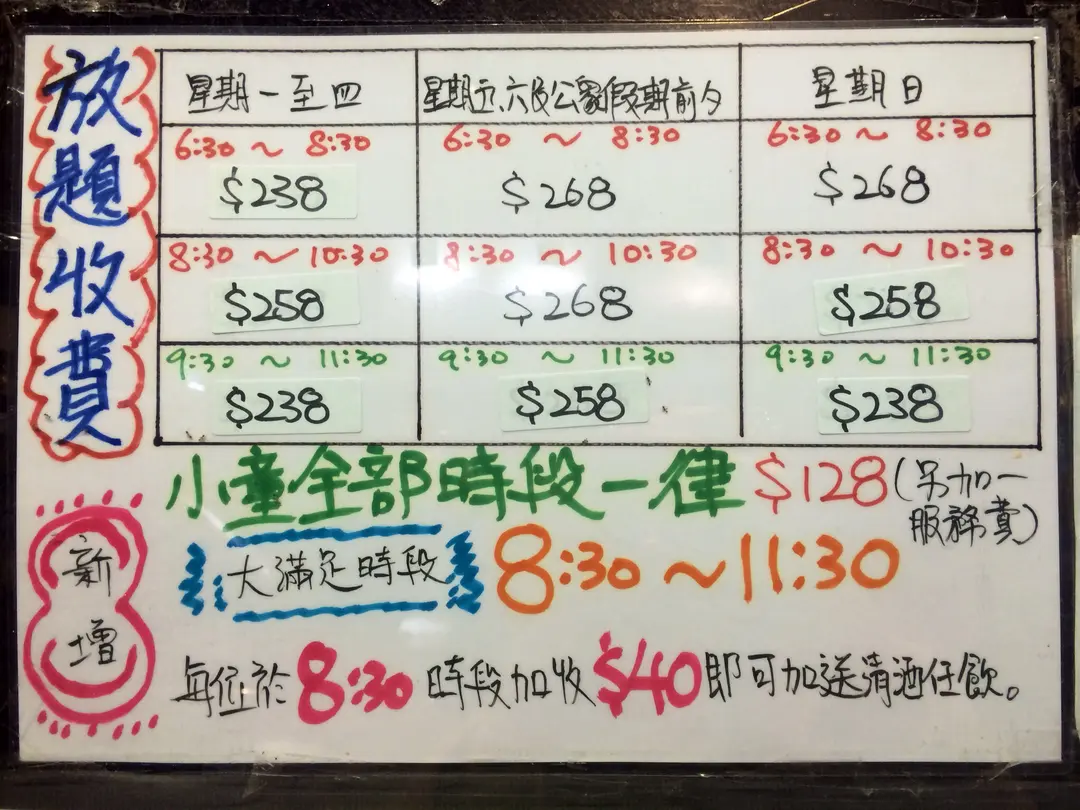 放題收費
星期一至四 星期五、六及公眾假期前夕 星期日
6:30 ~ 8:30 6:30 ~ 8:30 6:30 ~ 8:30
$238 $268 $268
8:30 ~ 10:30 8:30 ~ 10:30 8:30 ~ 10:30
$258 $268 $258
9:30 ~ 11:30 9:30 ~ 11:30 9:30 ~ 11:30
$238 $258 $238
小童全部時段一律 $128 (另加一
服務費)
新增
大滿足時段 8:30 ~ 11:30
每位於 8:30 時段加收 $40 即可加送清酒任飲。